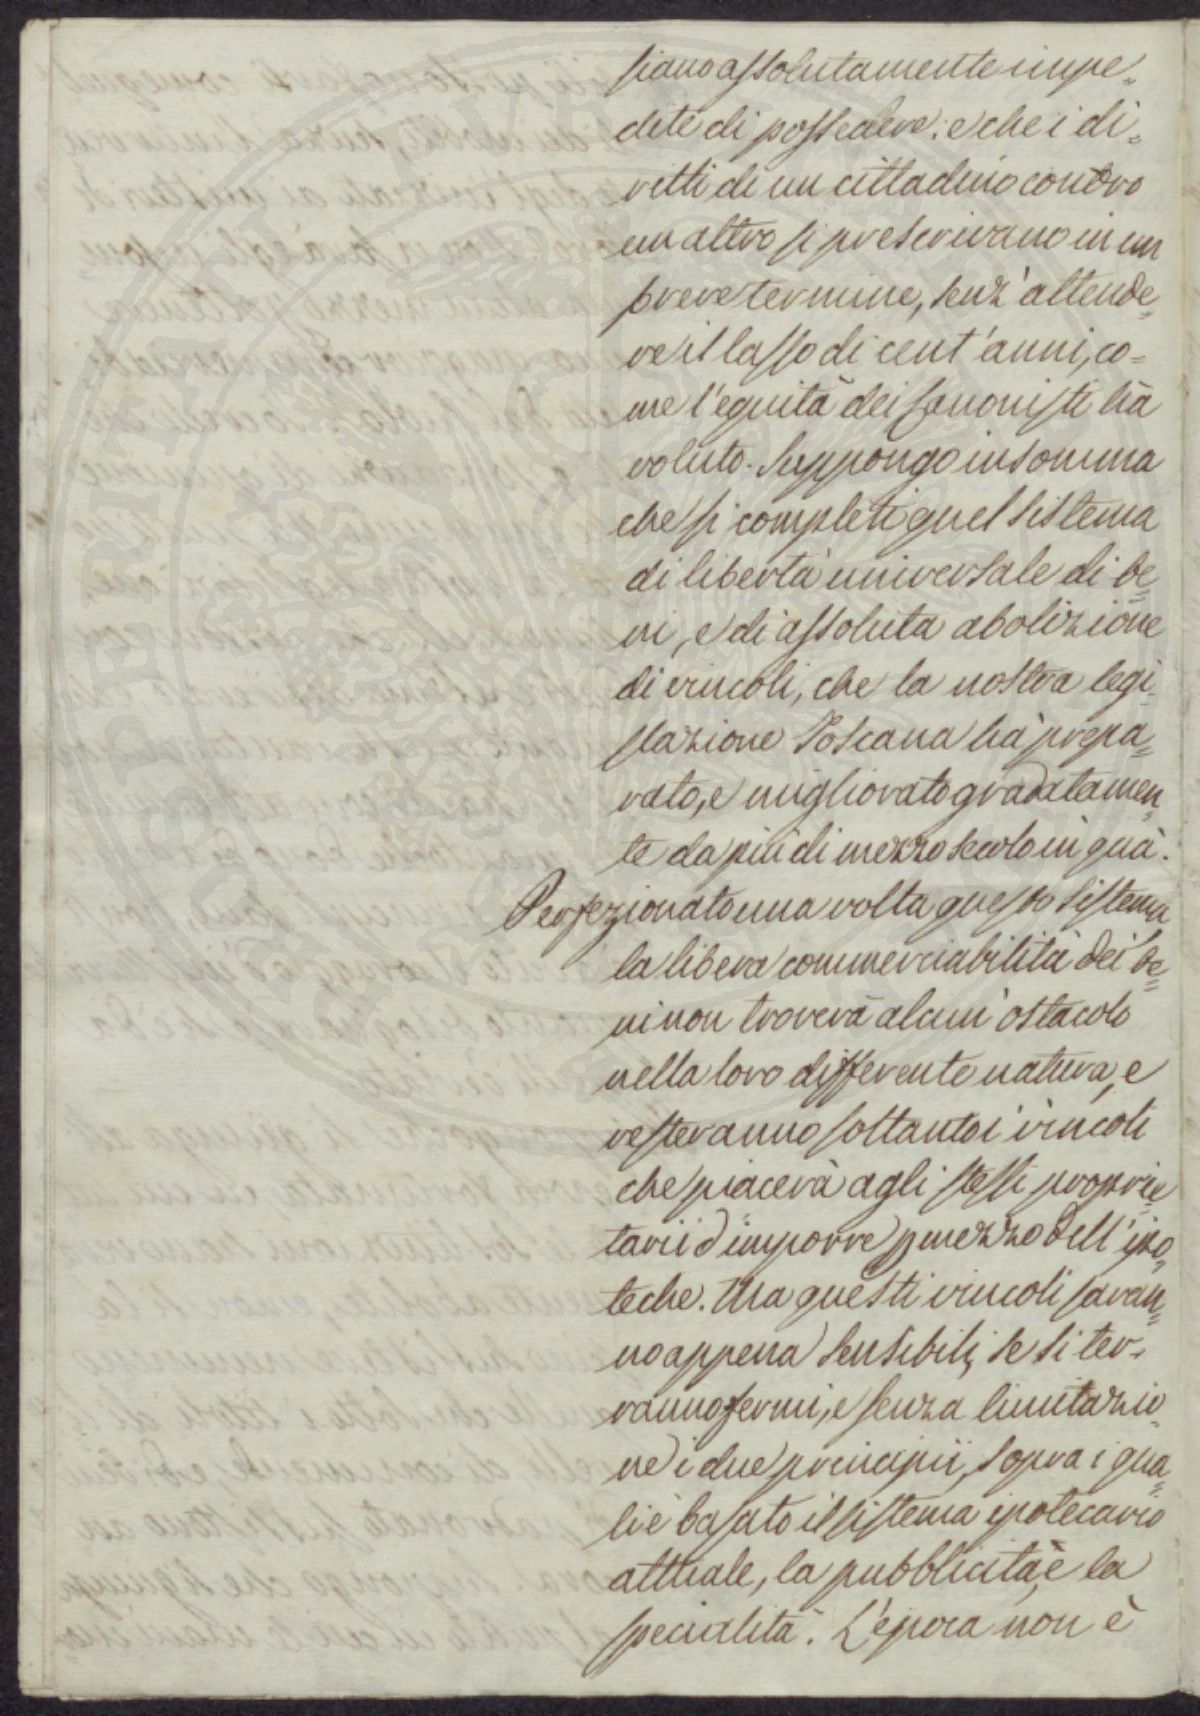 siano assolutamente impe=
dite di possedere: e che i di=
ritti di un cittadino contro
un altro si prescrivano in un
breve termine, senz'attende=
re il lasso di cent'anni, co=
me l'equità dei Canonisti hà
voluto. Suppongo insomma
che si completi quel sistema
di libertà universale di be=
ni, e di assoluta abolizione
di vincoli, che la nostra legi=
slazione Toscana hà prepa=
rato, e migliorato gradatamen=
te da più di mezzo secolo in quà.
Perfezionato una volta questo sistema
la libera commerciabilità dei be=
ni non troverà alcun'ostacolo
nella loro differente natura, e
resteranno soltanto i vincoli
che piacerà agli stessi proprie=
tarii d'imporre p mezzo dell'ipo=
teche. Ma questi vincoli saran=
no appena sensibili, se si ter=
ranno fermi, e senza limitazio=
ne i due principii, sopra i qua=
li è basato il sistema ipotecario
attuale, la pubblicità, e la
specialità. L'epoca non è